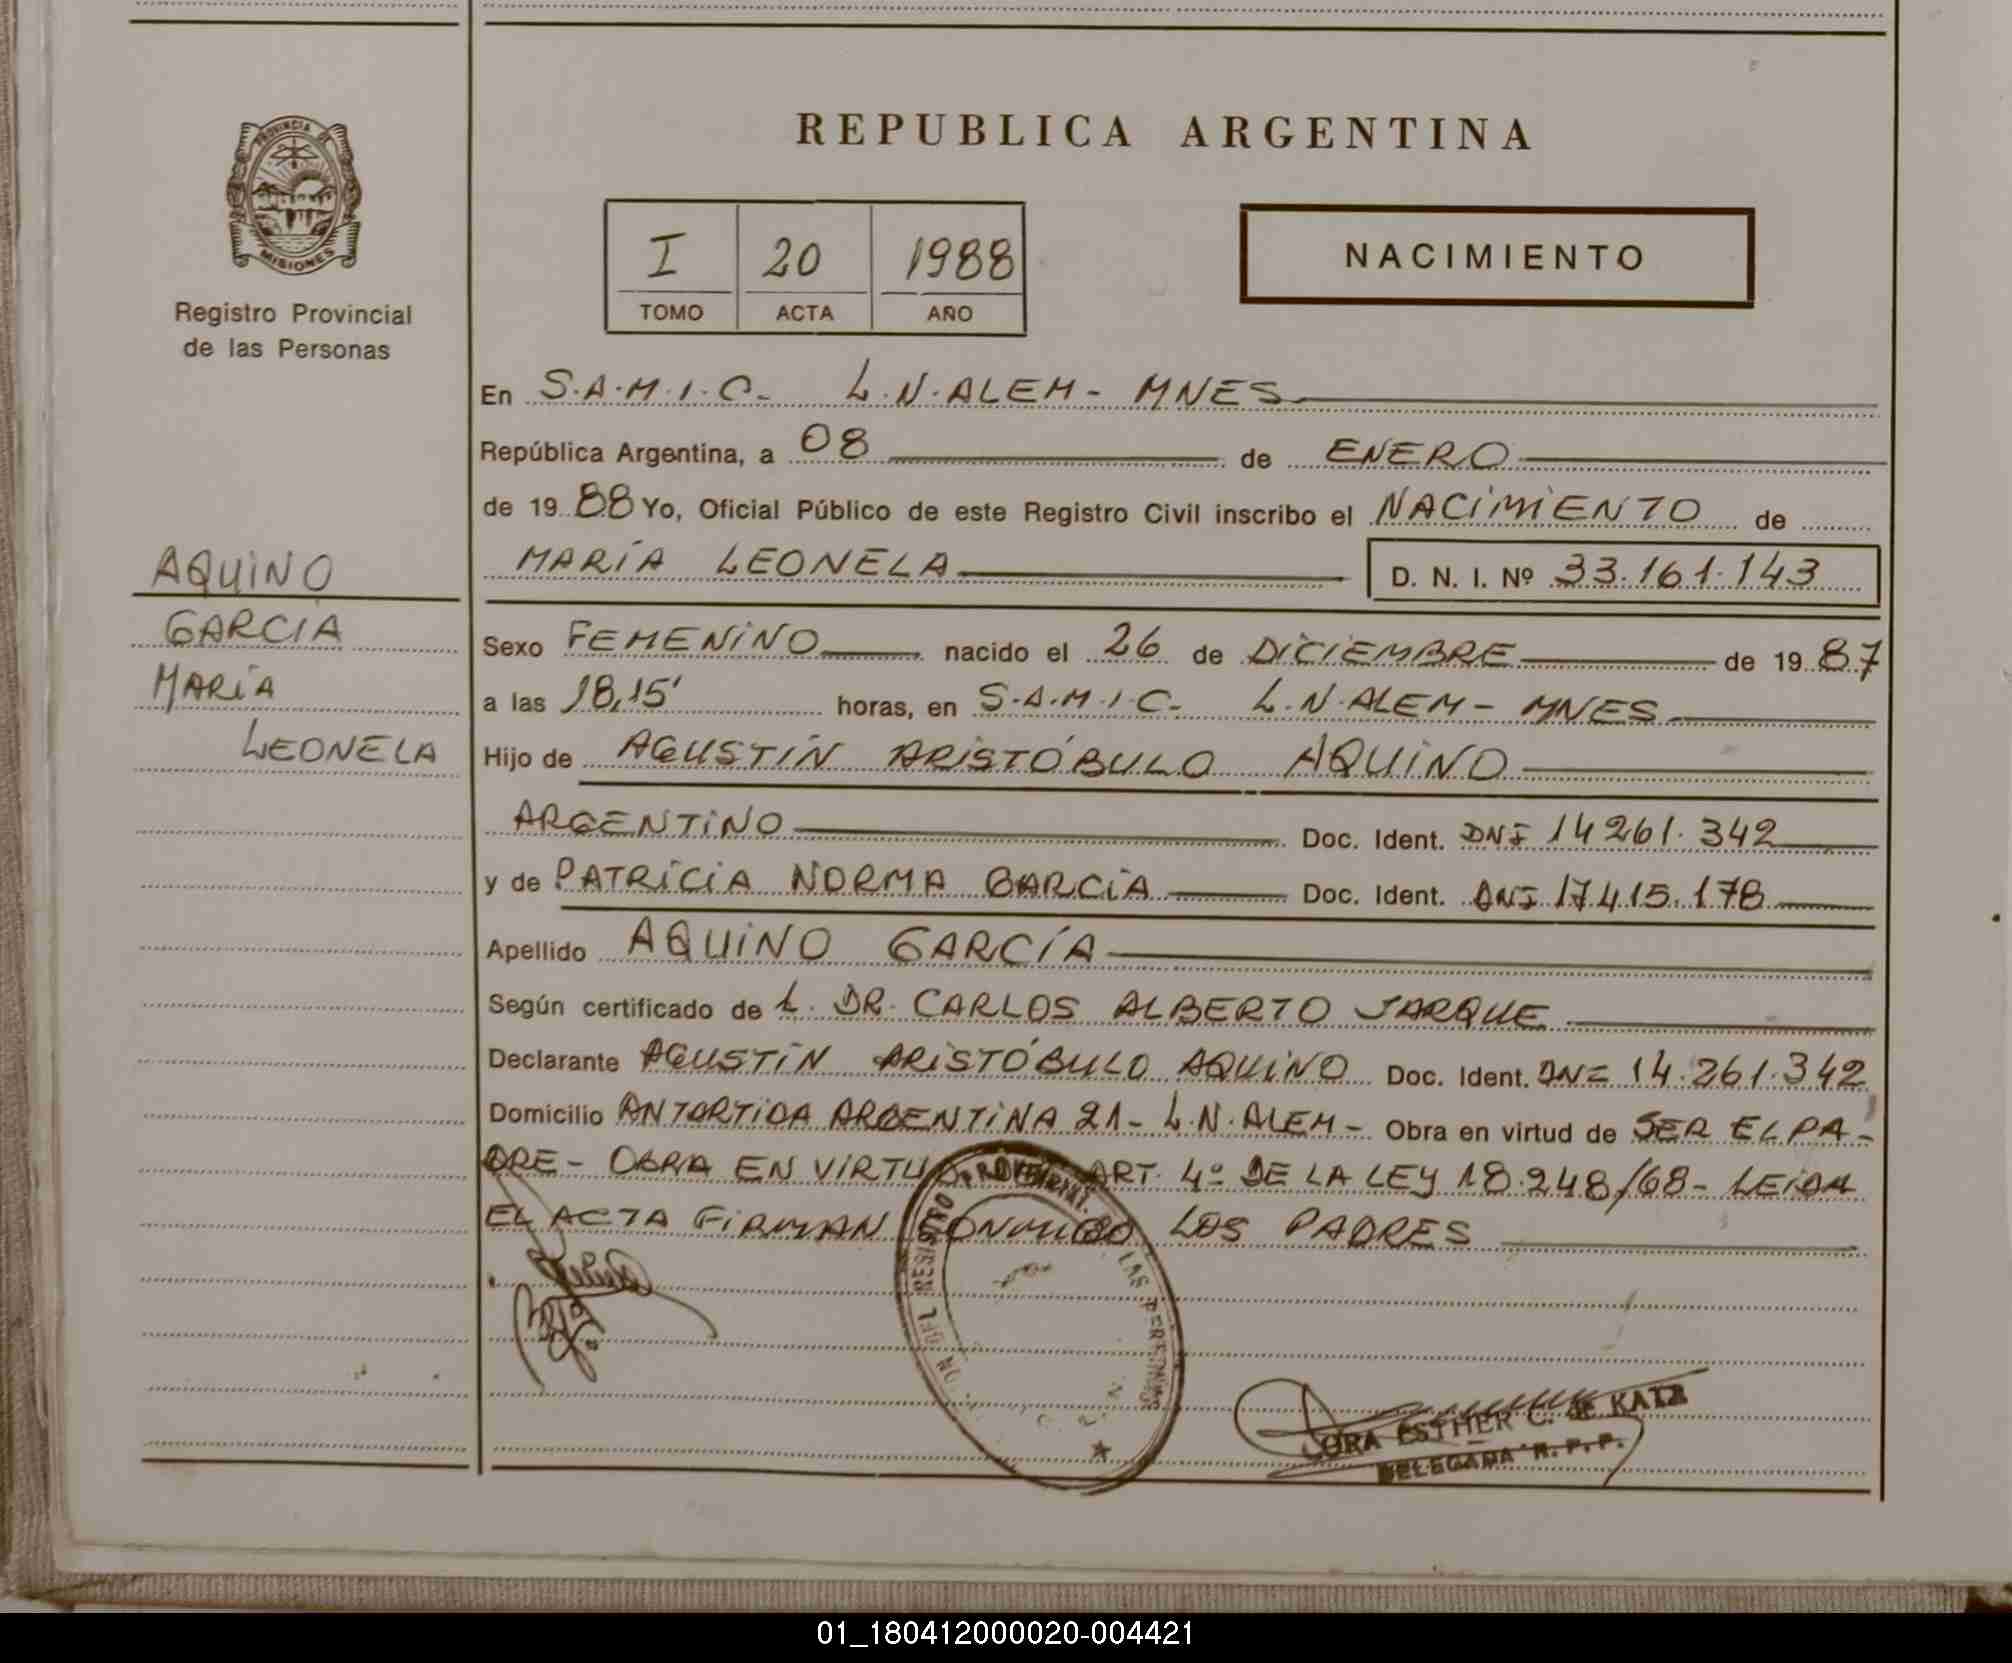 REPUBLICA ARGENTINA
PROVINCIA DE
MISIONES
Registro Provincial
de las Personas
I 20 1988
TOMO ACTA AÑO
NACIMIENTO
En S.A.M.I.C. L.N.ALEM- MNES
República Argentina, a 08 de ENERO
de 19 88 Yo, Oficial Público de este Registro Civil inscribo el NACIMIENTO de
MARÍA LEONELA D. N. I. Nº 33.161.143
AQUINO
GARCIA
MARÍA
LEONELA
Sexo FEMENINO nacido el 26 de DICIEMBRE de 19 87
a las 18,15' horas, en S.A.M.I.C- L.N.ALEM- MNES
Hijo de AGUSTÍN ARISTÓBULO AQUINO
ARGENTINO Doc. Ident. DNI 14261.342
y de PATRICIA NORMA GARCÍA Doc. Ident. DNI 17415.178
Apellido AQUINO GARCÍA
Según certificado de L. DR. CARLOS ALBERTO JARQUE
Declarante AGUSTÍN ARISTÓBULO AQUINO Doc. Ident. DNI 14.261.342
Domicilio ANTARTIDA ARGENTINA 21- L.N.ALEM- Obra en virtud de SER EL PA-
DRE- OBRA EN VIRTUD ART. 4º DE LA LEY 18.248/68- LEIDA
EL ACTA FIRMAN CONMIGO LOS PADRES
ESTHER C. de KATZ
DELEGADA R. P. P.
01_180412000020-004421